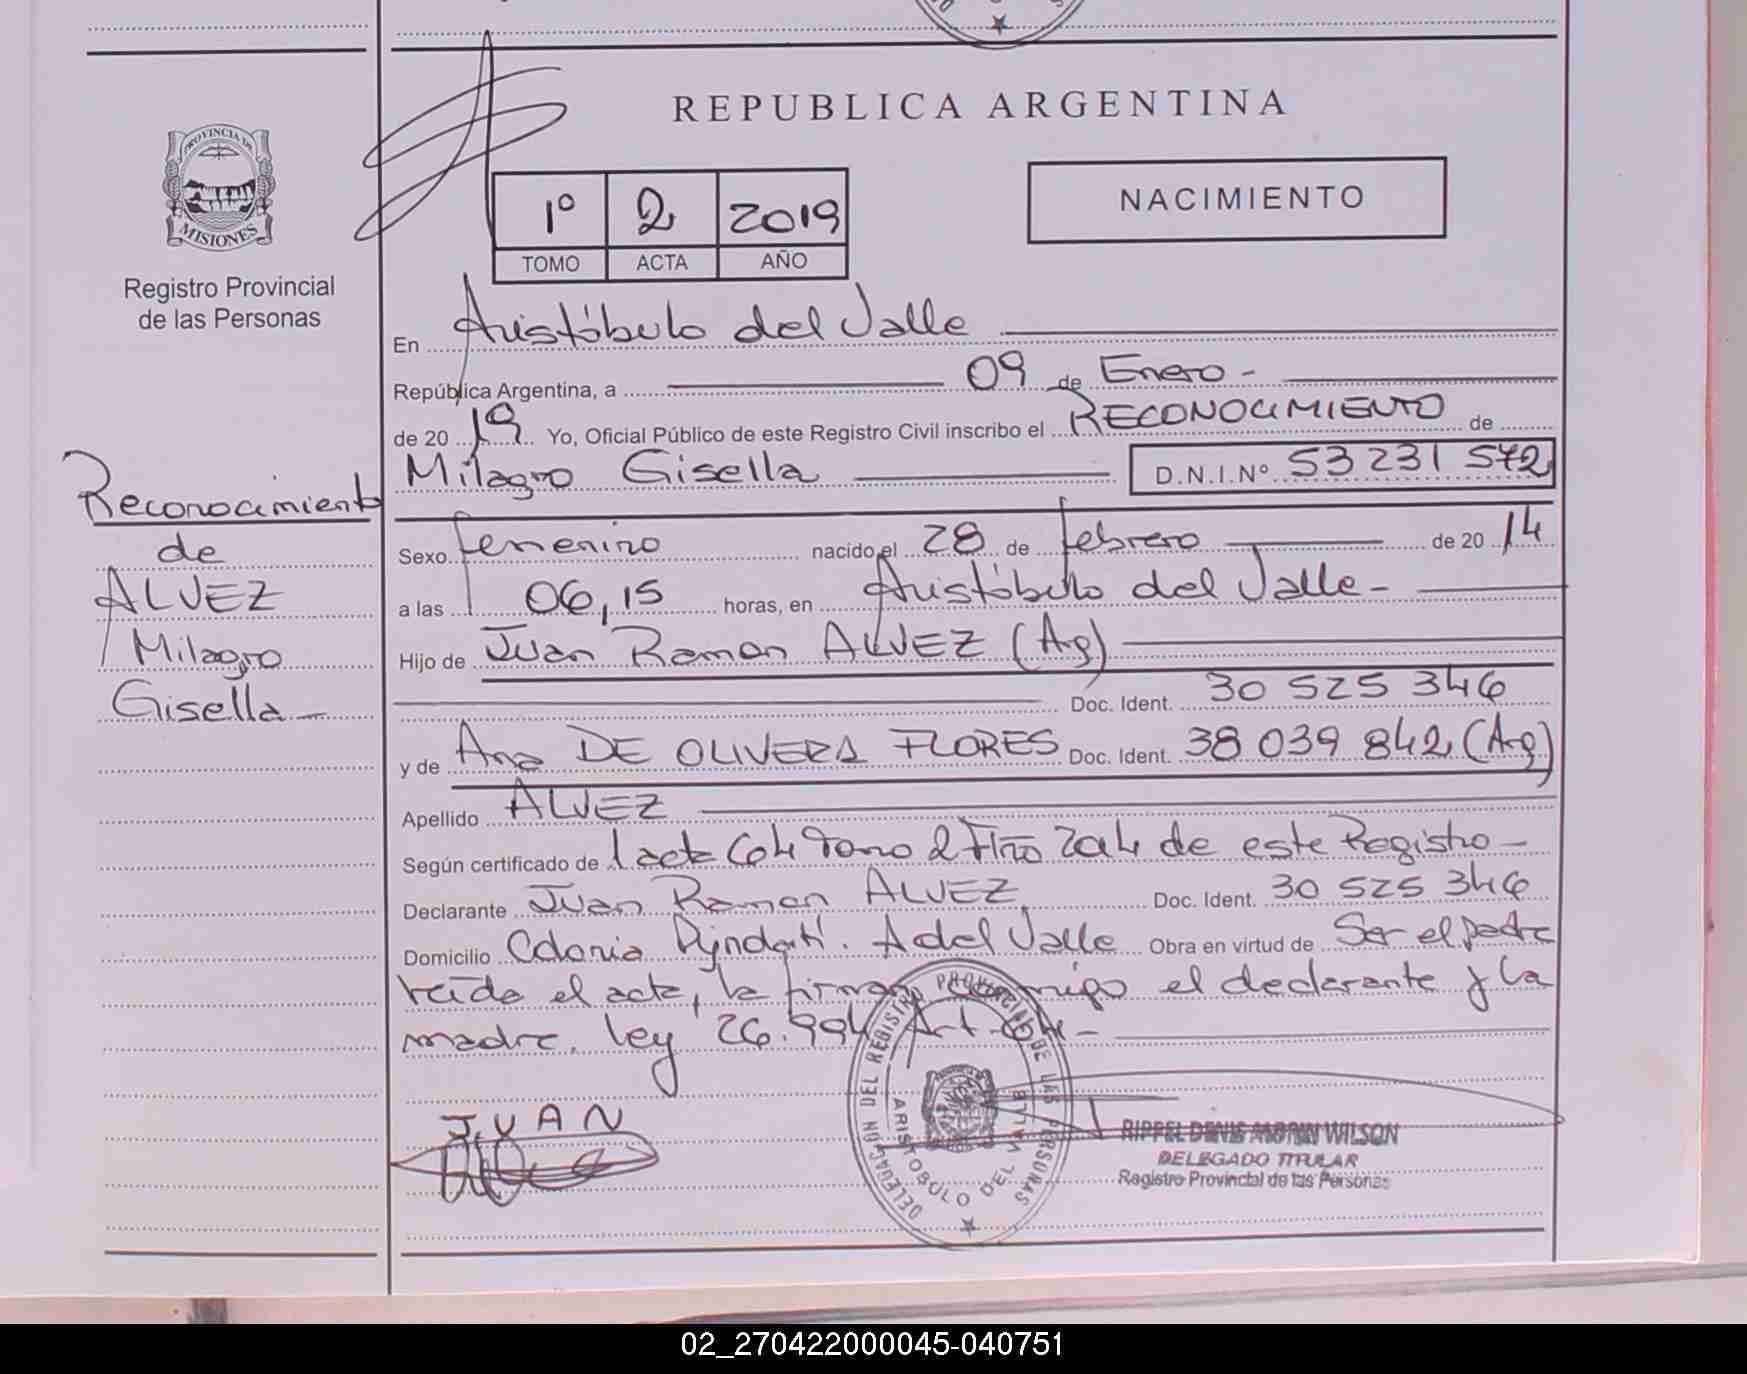 REPUBLICA ARGENTINA
PROVINCIA DE
MISIONES
Registro Provincial
de las Personas
1º 2 2019
TOMO ACTA AÑO
NACIMIENTO
En Aristóbulo del Valle
República Argentina, a 09 de Enero -
de 20 19 Yo, Oficial Público de este Registro Civil inscribo el RECONOCIMIENTO de
Milagro Gisella D.N.I.Nº 53 231 572
Sexo femenino nacido el 28 de febrero de 20 14
a las 06,15 horas, en Aristóbulo del Valle -
Hijo de Juan Ramon ALVEZ (Arg)
Doc. Ident. 30 525 346
y de Ana DE OLIVERA FLORES Doc. Ident. 38 039 842 (Arg)
Apellido ALVEZ
Según certificado de acta Tomo 2 Año 2014 de este Registro -
Declarante Juan Ramon ALVEZ Doc. Ident. 30 525 346
Domicilio Colonia A del Valle Obra en virtud de Ser el padre
Leída el acta, la firman conmigo el declarante y la
madre. Ley 26.994 Art
Reconocimiento
de
ALVEZ
Milagro
Gisella -
JUAN
DELEGACION DEL REGISTRO PROVINCIAL DE LAS PERSONAS
ARISTOBULO DEL VALLE
RIPPEL DENIS WILSON
DELEGADO TITULAR
Registro Provincial de las Personas
02_270422000045-040751